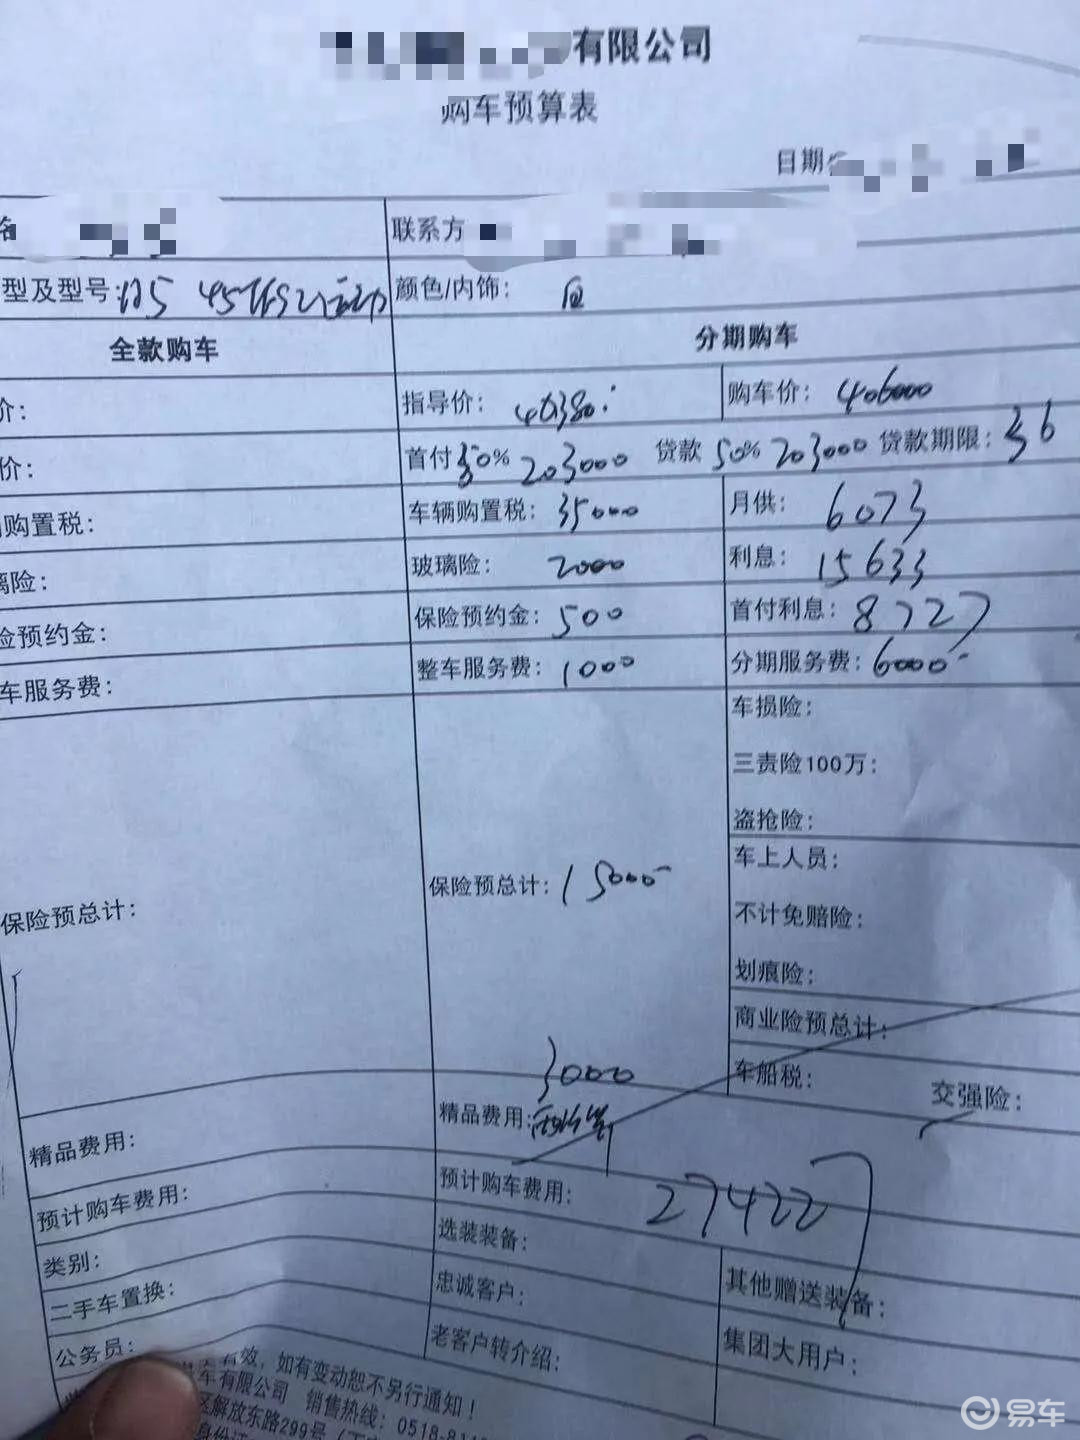 有限公司
购车预算表
日期:
联系方
型及型号: Q5 45TFSI 运动 颜色/内饰: 白
全款购车 分期购车
价: 指导价: 购车价: 406000
价: 首付50% 203000 贷款 50% 203000 贷款期限: 36
购置税: 车辆购置税: 35000 月供: 6073
璃险: 玻璃险: 2000 利息: 15633
险预约金: 保险预约金: 500 首付利息: 8727
车服务费: 整车服务费: 1000 分期服务费: 6000
车损险:
三责险100万:
盗抢险:
车上人员:
保险预总计: 保险预总计: 15000
不计免赔险:
划痕险:
商业险预总计:
车船税: 交强险:
3000
精品费用: 精品费用:
预计购车费用: 预计购车费用: 274227
类别: 选装装备: 其他赠送装备:
二手车置换: 忠诚客户: 集团大用户:
公务员: 老客户转介绍:
有效，如有变动恕不另行通知！
车有限公司 销售热线: 0518-811
区解放东路299号
身份证
易车